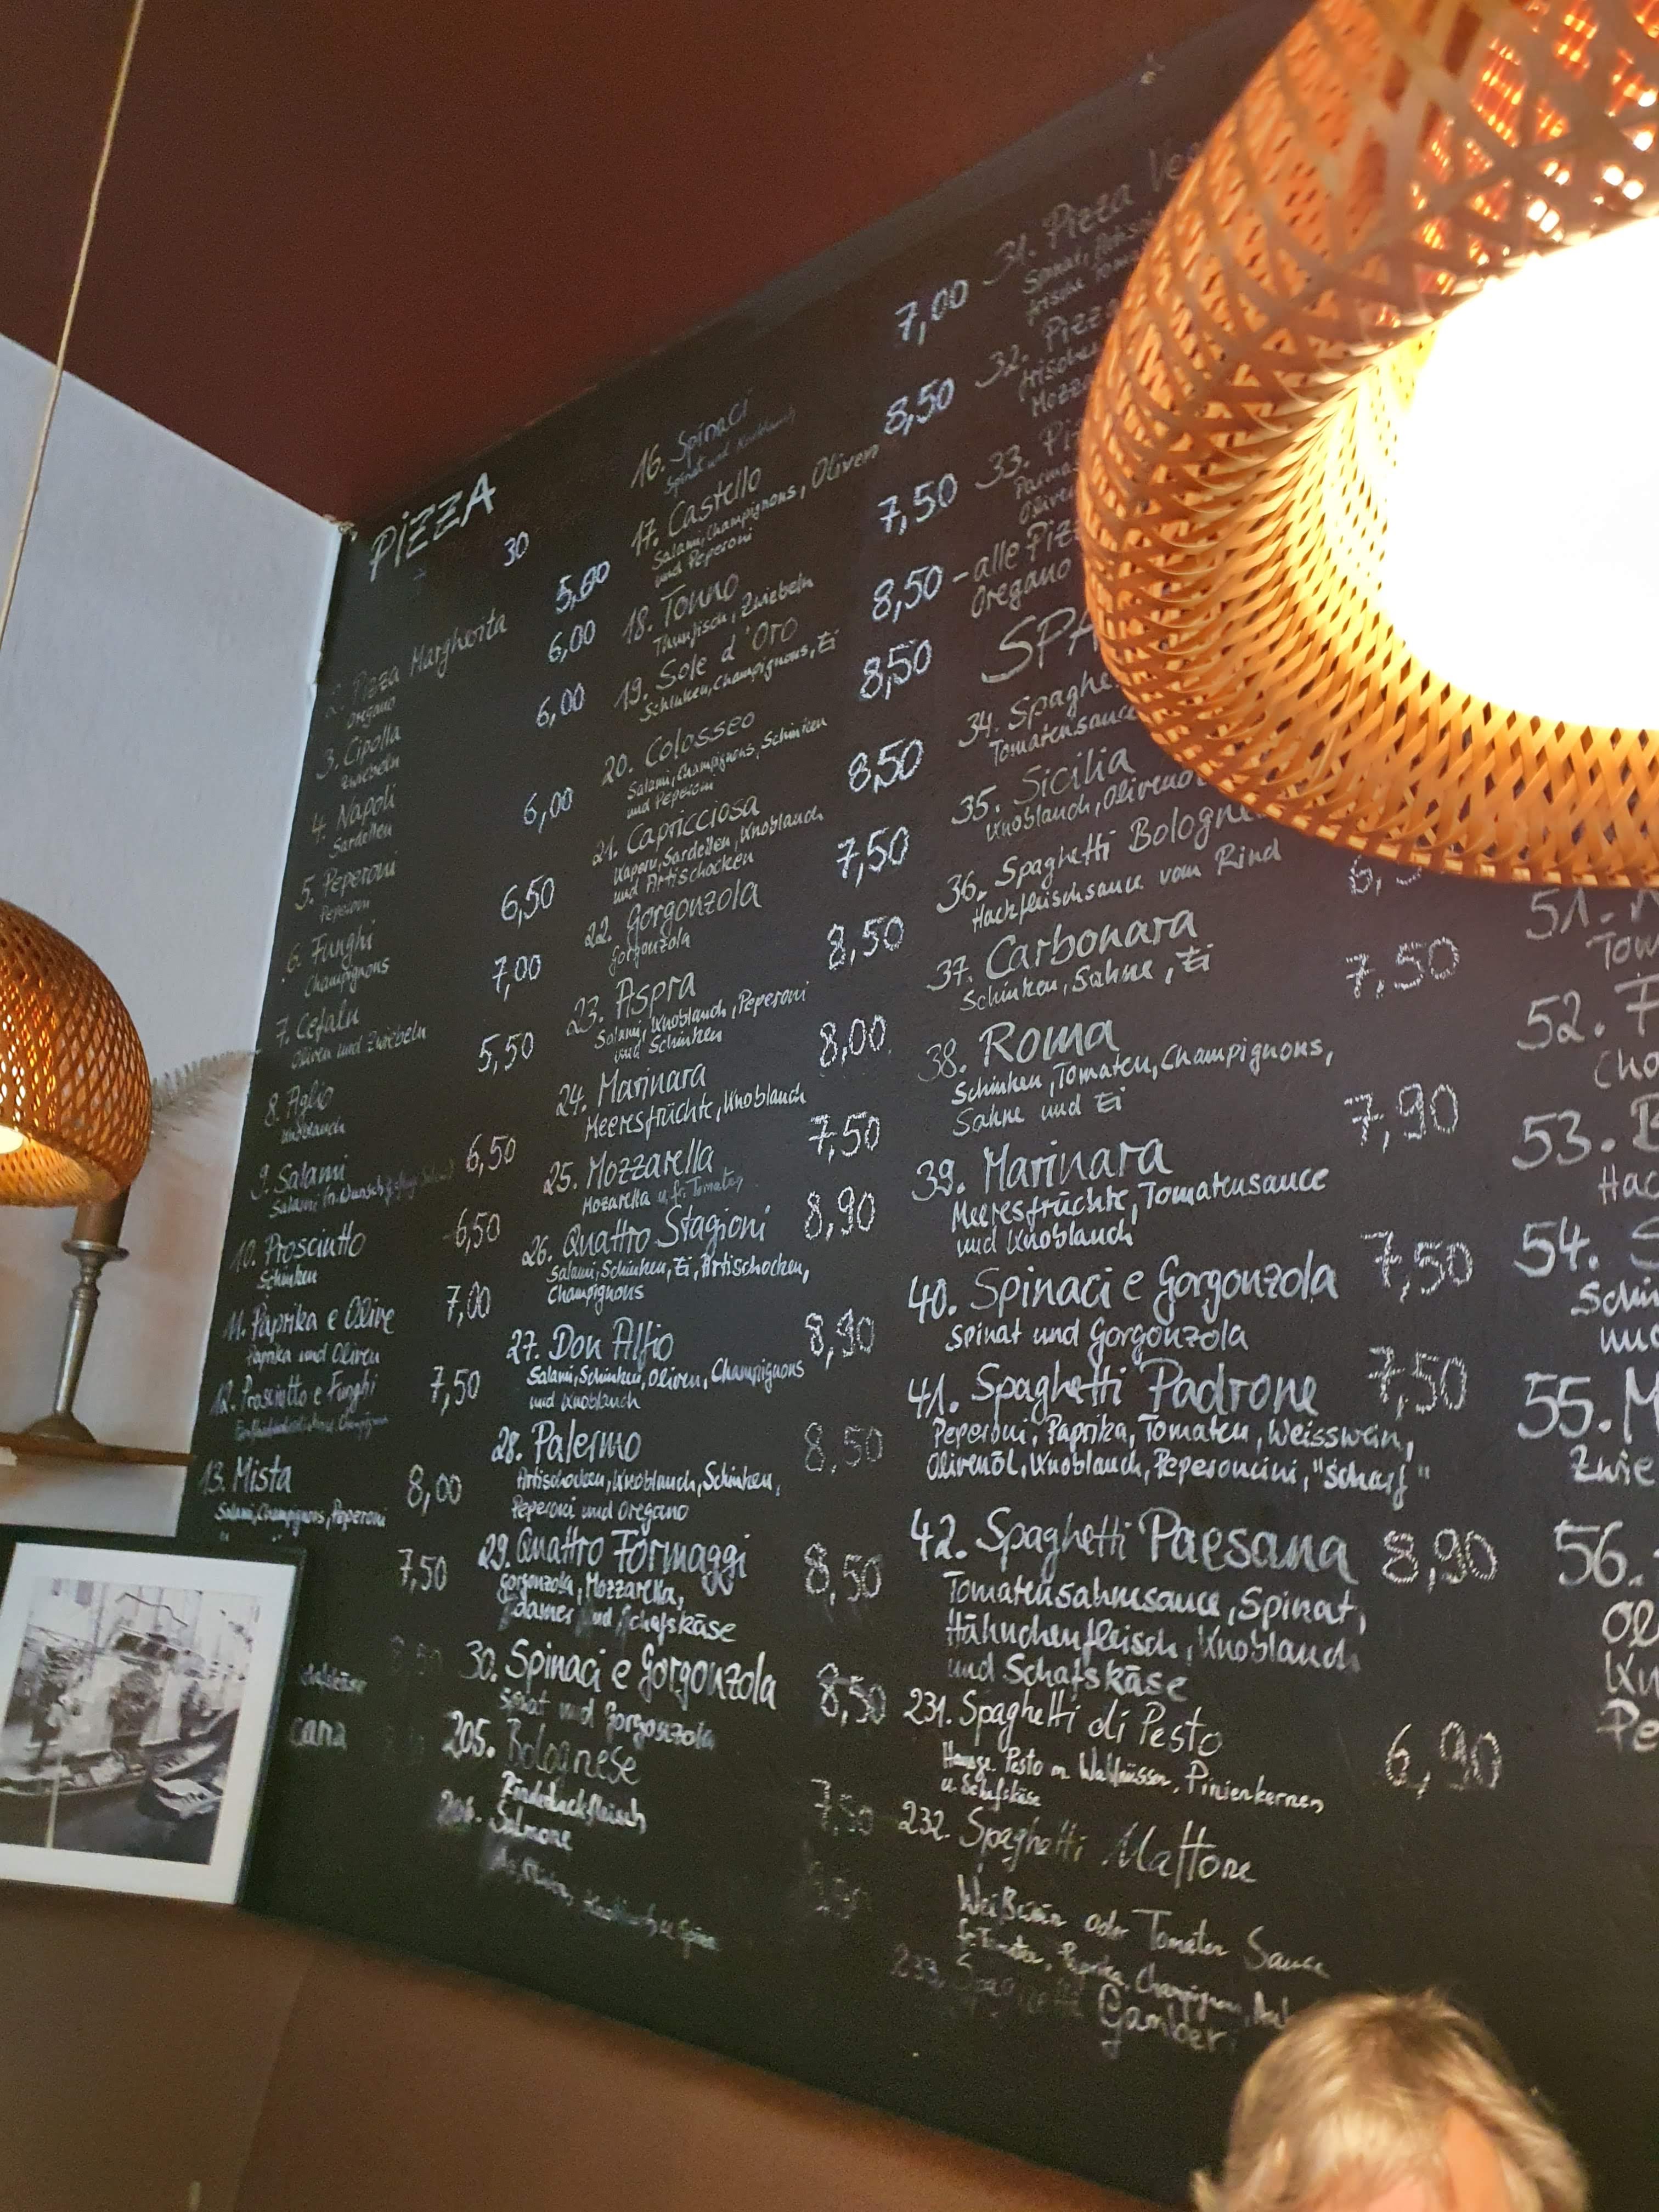 PIZZA
30
2. Pizza Margherita 5,00
Oregano
3. Cipolla 6,00
Zwiebeln
4. Napoli 6,00
Sardellen
5. Peperoni 6,00
Peperoni
6. Funghi 6,50
Champignons
7. Cefalu 7,00
Oliven und Zwiebeln
8. Aglio 5,50
Knoblauch
9. Salami 6,50
Salami
10. Prosciutto 6,50
Schinken
11. Paprika e Olive 7,00
Paprika und Oliven
12. Prosciutto e Funghi 7,50
13. Mista 8,00
Salami, Champignons, Peperoni
7,50
8,50
cana
16. Spinaci 7,00
Spinat und Knoblauch
17. Castello 8,50
Salami, Champignons, Oliven
und Peperoni
18. Tonno 7,50
Thunfisch, Zwiebeln
19. Sole d'Oro 8,50
Schinken, Champignons, Ei
20. Colosseo 8,50
Salami, Champignons, Schinken
und Peperoni
21. Capricciosa 8,50
Kapern, Sardellen, Knoblauch
und Artischocken
22. Gorgonzola 7,50
Gorgonzola
23. Aspra 8,50
Salami, Knoblauch, Peperoni
und Schinken
24. Marinara 8,00
Meeresfrüchte, Knoblauch
25. Mozzarella 7,50
Mozarella u. fr. Tomaten
26. Quattro Stagioni 8,90
Salami, Schinken, Ei, Artischocken,
Champignons
27. Don Alfio 8,90
Salami, Schinken, Oliven, Champignons
und Knoblauch
28. Palermo 8,50
Artischocken, Knoblauch, Schinken,
Peperoni und Oregano
29. Quattro Formaggi 8,50
Gorgonzola, Mozzarella,
Edamer und Schafskäse
30. Spinaci e Gorgonzola 8,50
Spinat und Gorgonzola
205. Bolognese 7,50
Rinderhackfleisch
206. Salmone
31. Pizza Ve
Spinat,
frische Tom
32. Pizz
frische
Mozza
33. Pi
Parma
Olive
- alle Piz
Oregano
SPA
34. Spaghe
Tomatensauce
35. Sicilia
Knoblauch, Olivenö
36. Spaghetti Bologne
Hackfleischsauce vom Rind
37. Carbonara 7,50
Schinken, Sahne, Ei
38. Roma 7,90
Schinken, Tomaten, Champignons,
Sahne und Ei
39. Marinara 7,50
Meeresfrüchte, Tomatensauce
und Knoblauch
40. Spinaci e Gorgonzola 7,50
Spinat und Gorgonzola
41. Spaghetti Padrone
Peperoni, Paprika, Tomaten, Weisswein,
Olivenöl, Knoblauch, Peperoncini, "scharf"
42. Spaghetti Paesana 8,90
Tomatensahnesauce, Spinat,
Hähnchenfleisch, Knoblauch
und Schafskäse
231. Spaghetti di Pesto 6,90
Hausge. Pesto m Wallnüssen, Pinienkernen
u. Schafskäse
232. Spaghetti Mattone
Weißwein oder Tomaten Sauce
fr. Tomaten, Paprika, Champignons,
233. Spaghetti Gamberi
51.
Tom
52. F
Cha
53. B
Hac
54. S
Schin
und
55. M
Zwie
56.
Ol
Kn
Pe